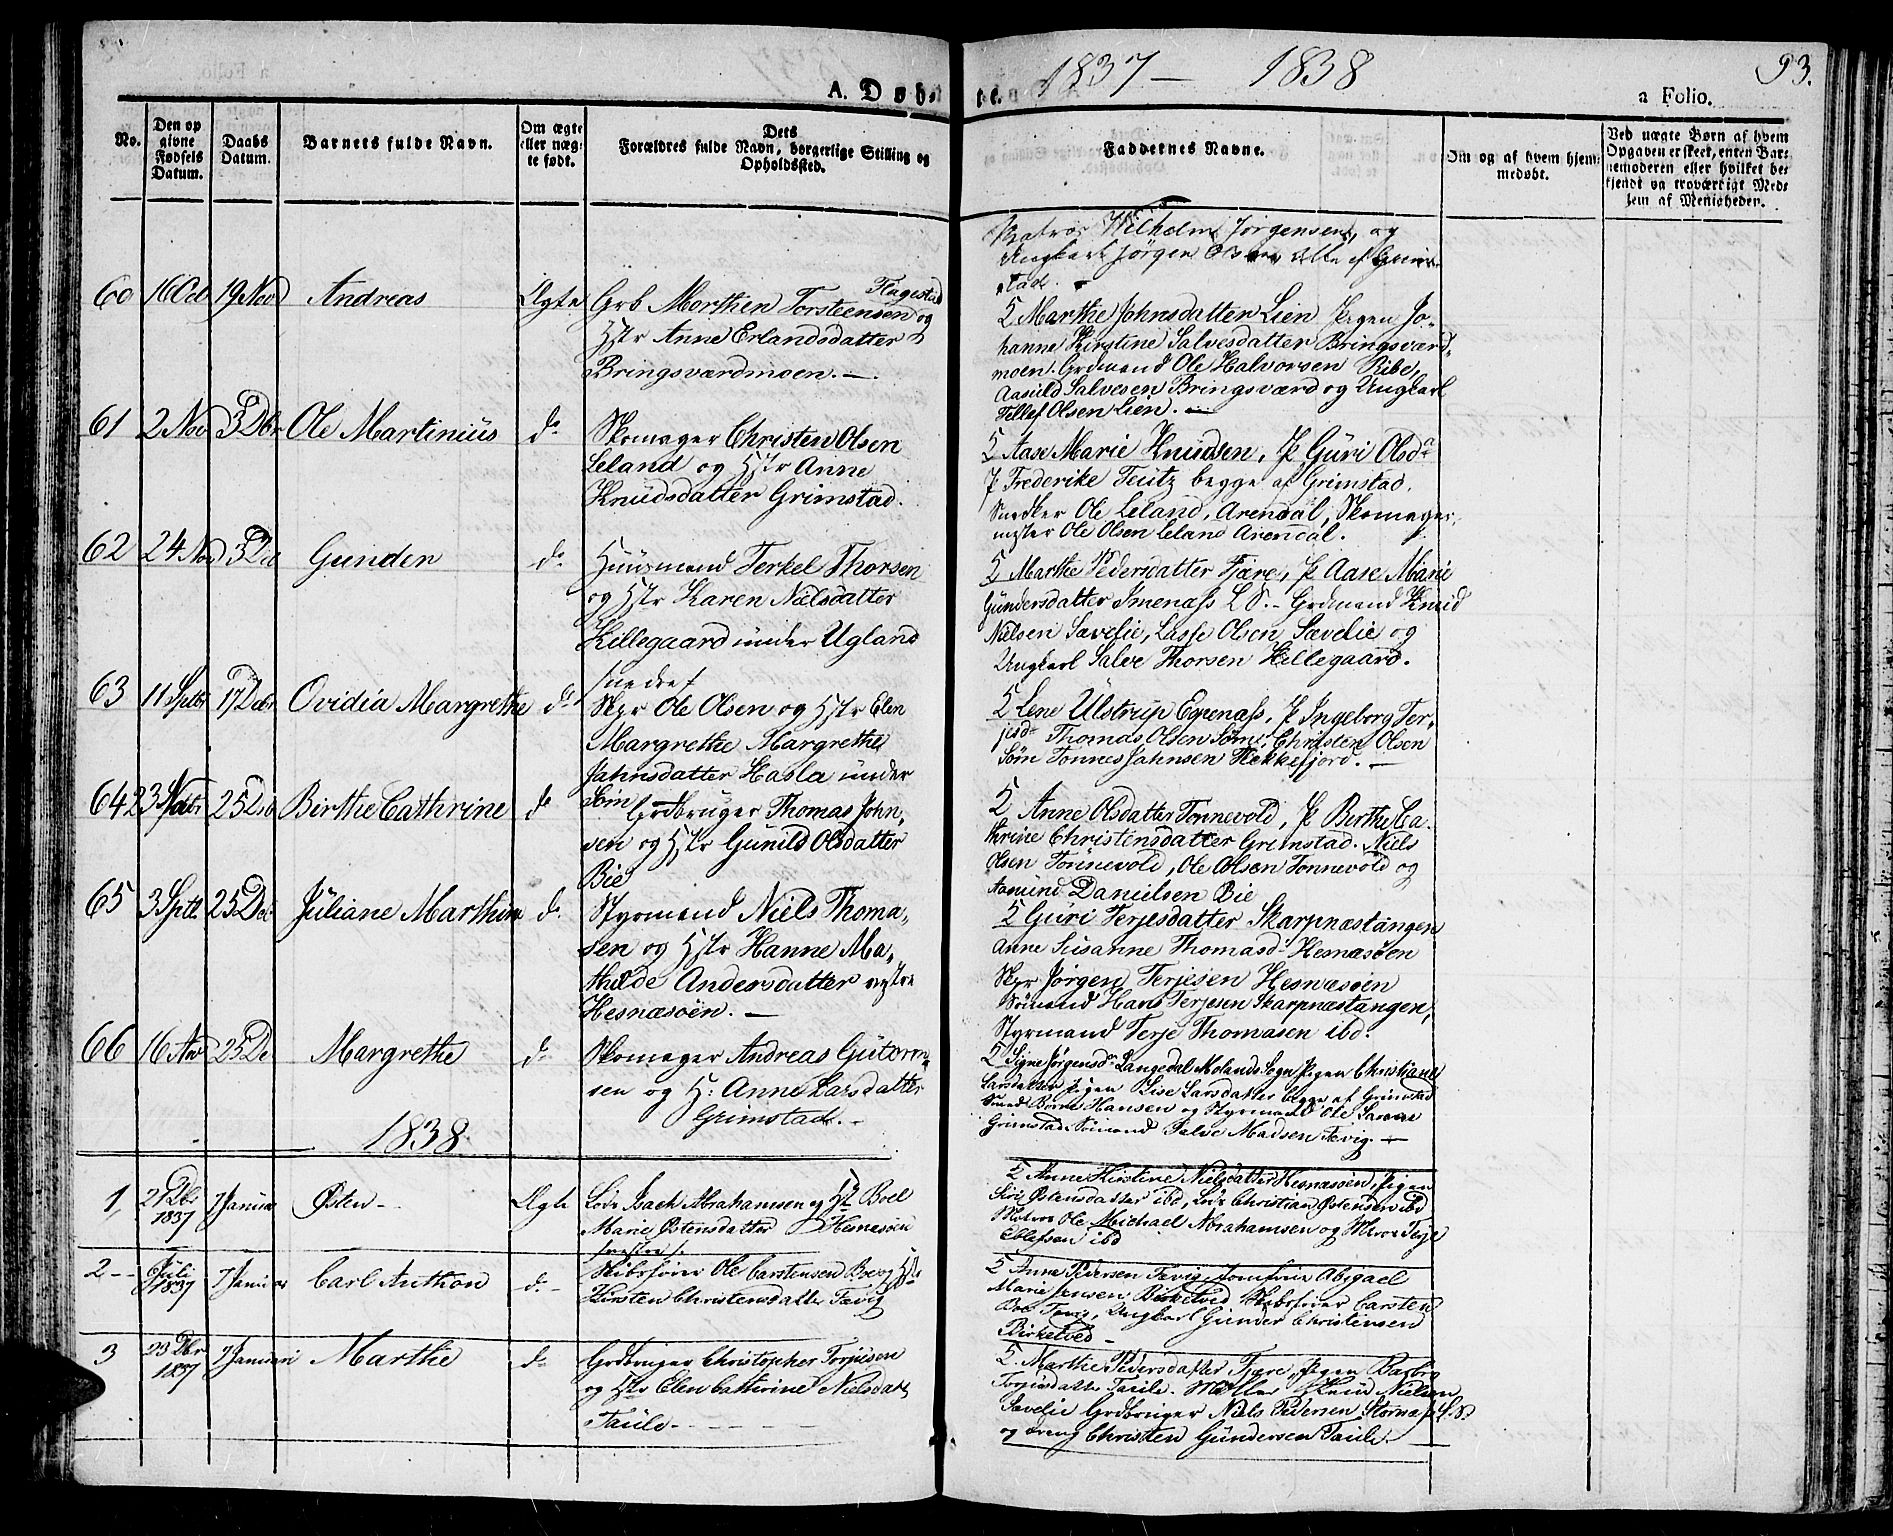 1837 — 1838
93.
A. Døbte.
a Folio.
No.
Den op
givne
Fødsels
Datum.
Daabs
Datum.
Barnets fulde Navn.
Om ægte
eller uæg-
te født.
Dets
Forældres fulde Navn, borgerlige Stilling og
Opholdssted.
Faddernes Navne.
Om og af hvem hjem-
medøbt.
Ved uægte Børn af hvem
Opgaven er skeet, enten Bar-
nemoderen eller hvilket be-
kjendt og troværdigt Med-
lem af Menigheden.
Matros Wilhelm Jørgensen, og
Ungkarl Jørgen Olsen alle af Grim-
stad. -
60 16 Oct 19 Nov Andreas Ægte Grb Morthen Torsteensen Flagestad og
Hstr Anne Erlandsdatter
Bringsværdmoen. —
5 Marthe Johnsdatter Lien Pigen Jo-
hanne Kirstine Salvesdatter Bringsværd-
moen. Grdmand Ole Halvorsen Ribe,
Aasuld Salvesen Bringsværd og Ungkarl
Tellef Olsen Lien. —
61 2 Nov 3 Dbr Ole Martinius do Skomager Christen Olsen
Leland og Hstr Anne
Knudsdatter Grimstad.
5 Aase Marie Knudsen, P Guri Olsdr
P Frederike Teutz begge af Grimstad.
Snedker Ole Leland, Arendal, Skomager-
mester Ole Olsen Leland Arendal.
62 24 Nov 3 De Gunder do Huusmand Terkel Thorsen
og Hstr Karen Nielsdatter
Killegaard under Ugland
5 Marthe Pedersdatter Fjære, P Aase Marie
Gundersdatter Smenæss L S. - Grdmand Knud
Nielsen Sævelie, Lasse Olsen Sævelie og
Ungkarl Salve Thorsen Killegaard.
63 11 Sptbr 17 Decbr Ovidia Margrethe do Skpr Ole Olsen og Hstr Elen
Margrethe Margrethe
Jahnsdatter Hasla under
Søm
5 Lene Ulstrup Egenæss, P Ingeborg Ter-
jesdr Thomas Olsen Søm, Christen Olsen
Søm Tønnes Jahnsen Flekkefjord. —
64 23 25 Birthe Cathrine do Grdbruger Thomas John-
sen og Hstr Gunild Olsdatter
Bie
5 Anne Olsdatter Tønnevold, P Birthe Ca-
thrine Christensdatter Grimstad. Niels
Olsen Tønnevold, Ole Olsen Tonnevold og
Aamund Danielsen Bie
65 3 Sptb 25 Dec Juliane Marthine do Styrmand Niels Thoma-
sen og Hstr Hanne Ma-
thilde Andersdatter vestre
Hesnæsøen. —
5 Guri Terjesdatter Skarpnæstangen
Anne Susanne Thomasd Hesnæsøen
Skpr Jørgen Terjesen Hesnæsøen
Sømand Hans Terjesen Skarpnæstangen,
Styrmand Terje Thomasen ibd.
66 16 Nov 25 De Margrethe do Skomager Andreas Gutorm-
sen og H: Anne Larsdatter
Grimstad. -
5 Signe Jørgensdr Langedal Molands Sogn Pigen Christiane
Larsdatter Pigen Lise Larsdatter begge af Grimstad
Hansen og Styrmand Ole
Grimstad Sømand Salve Madsen Fevig. —
1838.
1, 21 Dbr
1837 7 Januar Østen - Ægte Lods Bach Abrahamsen og Hst Boel
Marie Østensdatter Hesnæsøen
vestre
5 Anne Kirstine Nielsdatter Hesnæsøen, Pigen
Siri Østensdatter ibd, Lods Christian Østensen ibd
Matros Ole Michael Abrahamsen og Matros Terje
Ellefsen ibd
2 - - 6 Juli
1837 7 Januar Carl Anthon do - Skibsfører Ole Carstensen Boe og Hstr
Kirsten Christensdatter Fævig
5 Anna Pedersen Fævig, Jomfrue Abigael
Marie Jensen Birketved Skibsfører Carsten
Boe Fævig, Ungkarl Gunder Christensen
Birketved -
3 23 Dbr
1837 7 Januari Marthe do Grdbruger Christopher Torjusen
og Hstr Elen Cathrine Nielsdatr
Taule - - -
5. Marthe Pedersdatter Fjære, Pigen Barbro
Torjusdatter Taule. Møller Knud Nielsen
Sævelie Grdbruger Niels Pedersen L. S.
og dreng Christen Gundersen Taule